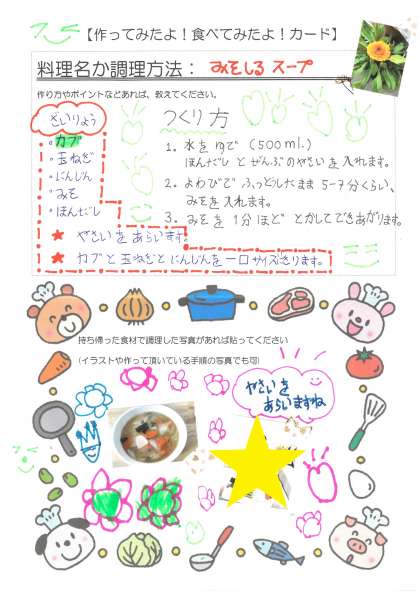 【作ってみたよ！食べてみたよ！カード】
料理名か調理方法： みそしる スープ
作り方やポイントなどあれば、教えてください。
ざいりょう
・カブ
・玉ねぎ
・にんじん
・みそ
・ほんだし
★ やさいをあらいます。
★ カブと玉ねぎとにんじんを一口サイズきります。
つくり方
1. 水をゆで (500ml.)
ほんだしとぜんぶのやさいを入れます。
2. よわびで ふっとうしたまま 5-7分くらい、
みそを入れます。
3. みそを1分ほど とかしてできあがります。
持ち帰った食材で調理した写真があれば貼ってください
(イラストや作って頂いている手順の写真でも可)
やさいを
あらいますね